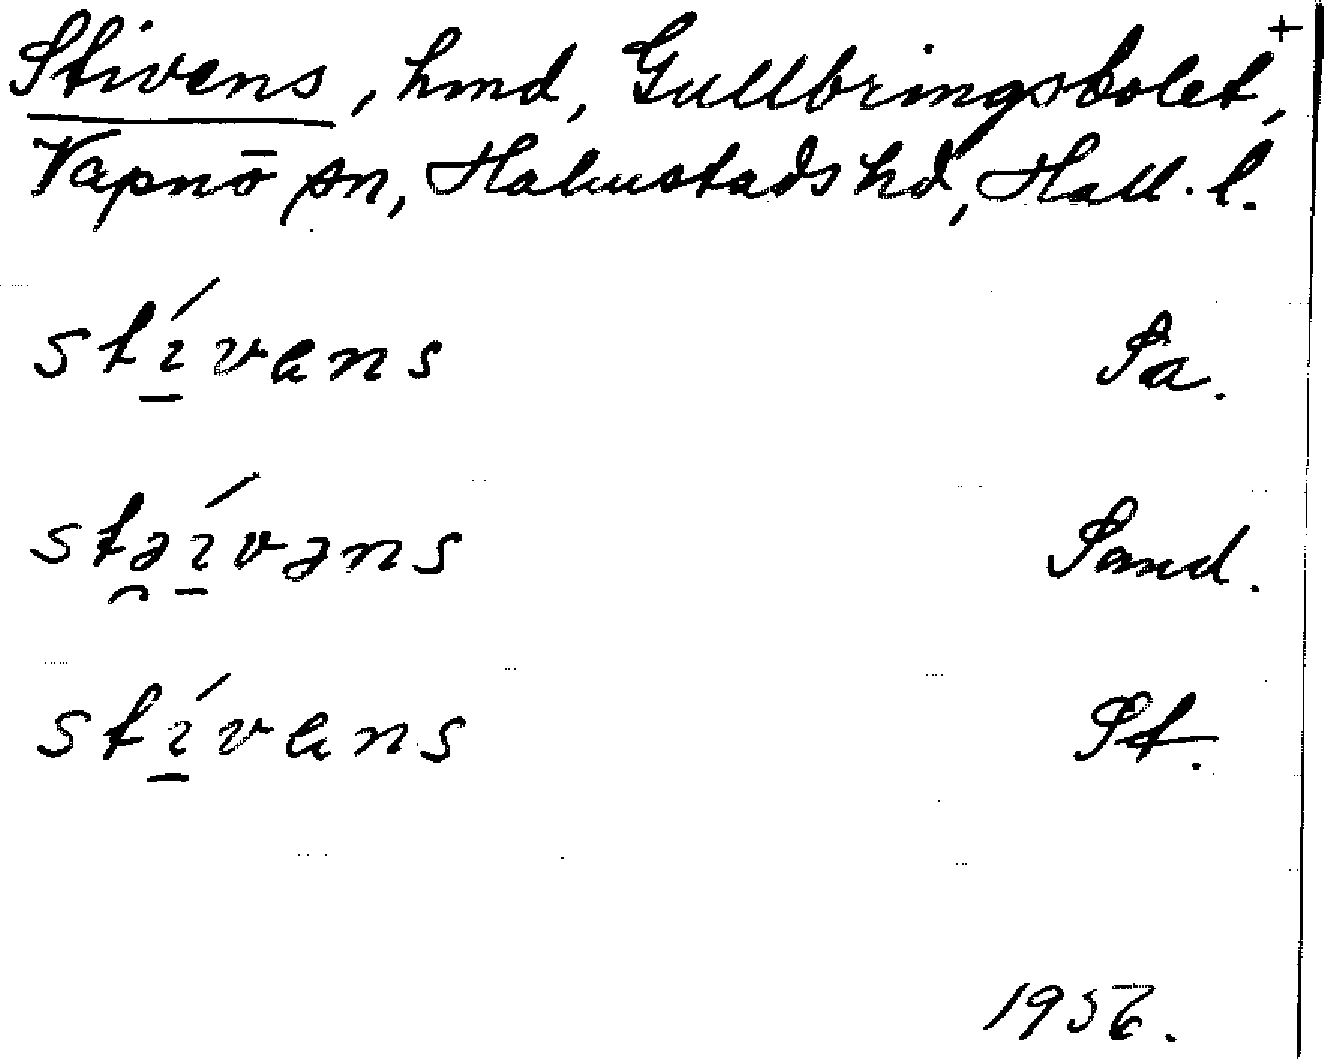 Stivens, hmd, Gullbringsbolet, +
Vapnö sn, Halmstads hd, Hall. l.
stí̱vens Sa.
stə̯í̱vəns Sand.
stí̱vens St.
1956.